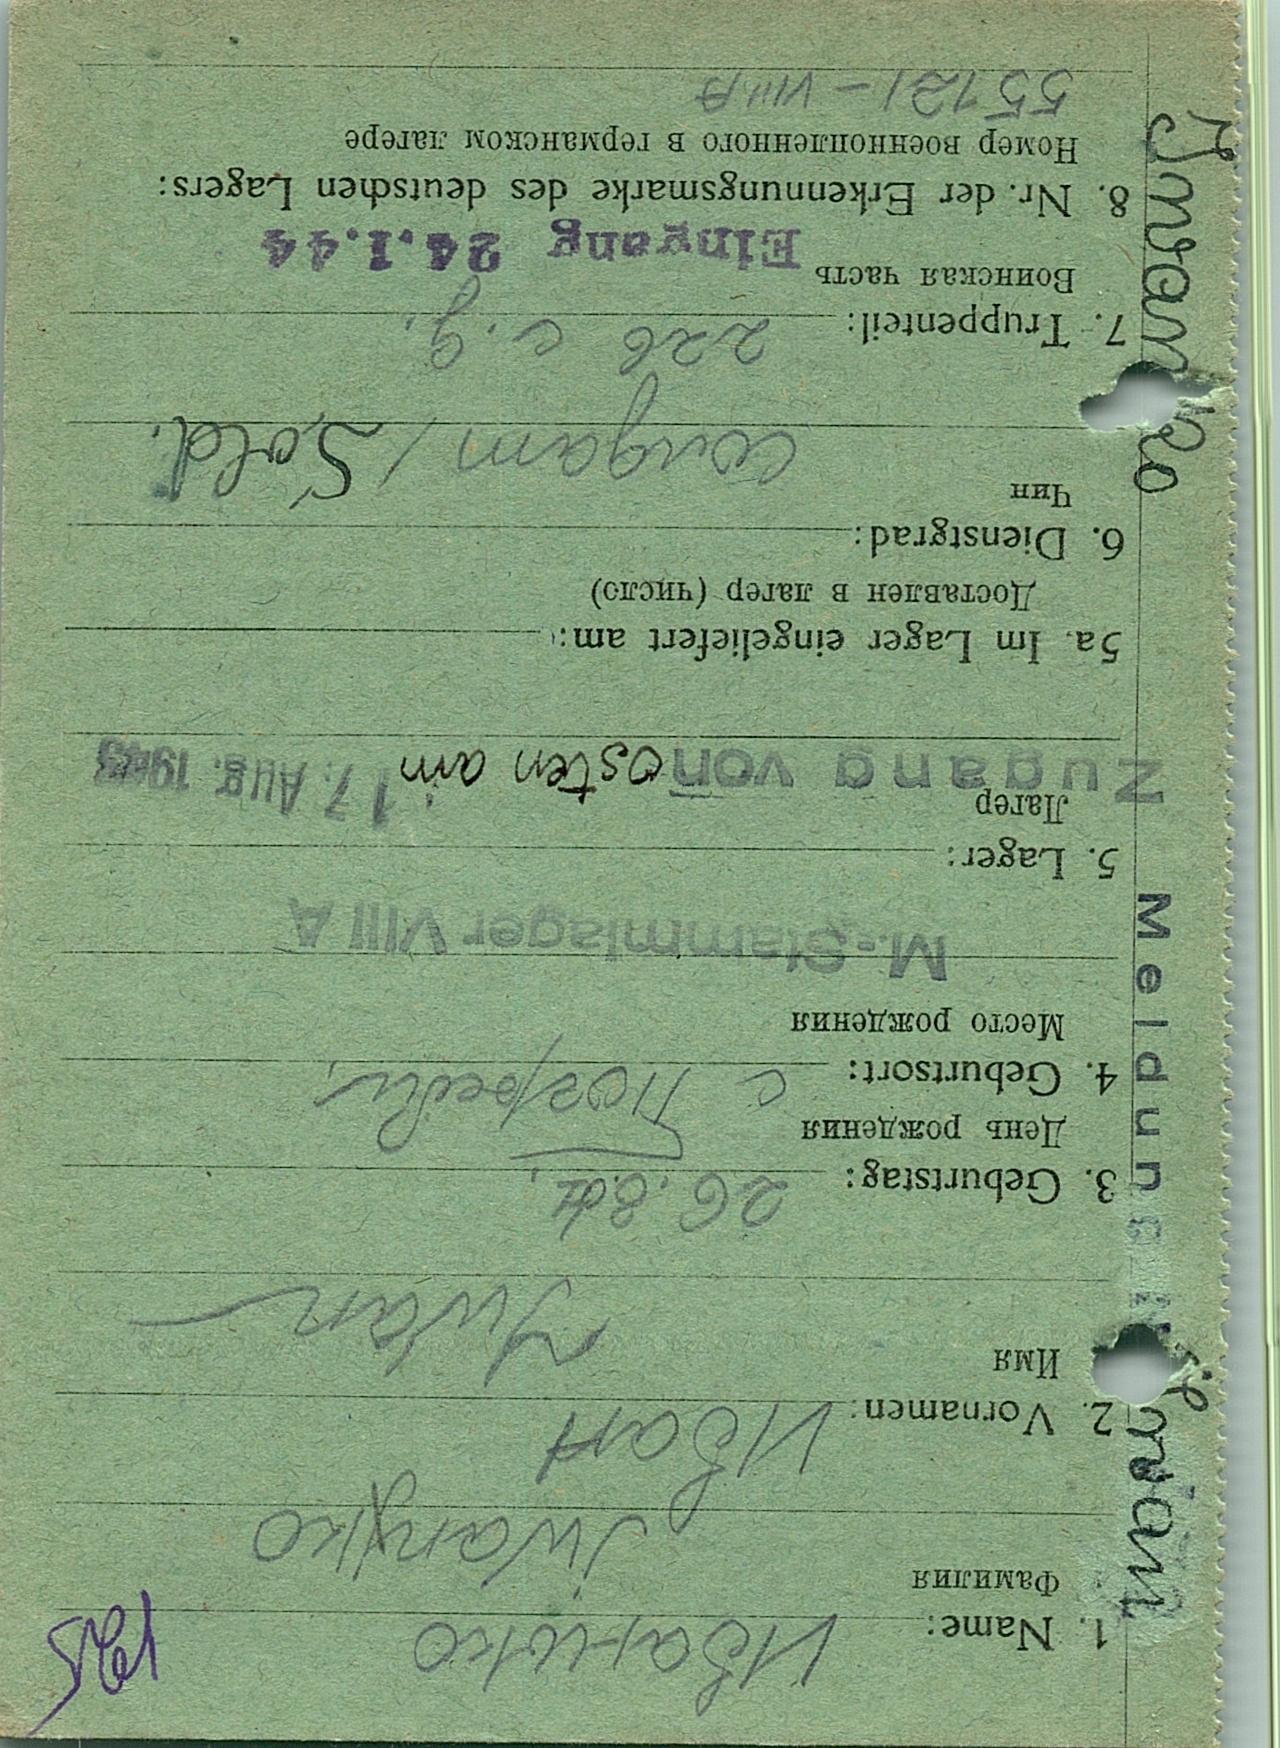 1. Name: Иванико
Фамилия
Iwanjko
2. Vornamen: Иван
Имя
Iwan
3. Geburtstag: 26.8.
День рождения
4. Geburtsort: с Погреби,
Место рождения
M.-Stammlager VIII A
5. Lager:
Лагер
Zugang von osten am 17. Aug. 1943
5a. Im Lager eingeliefert am:
Доставлен в лагер (число)
6. Dienstgrad:
Чин
солдат / Sold.
7. Truppenteil: 226 с.д.
Воинская часть
Eingang 24.1.44
8. Nr. der Erkennungsmarke des deutschen Lagers:
Номер военнопленного в германском лагере
55121 – VIII A
Iwan
Meldung